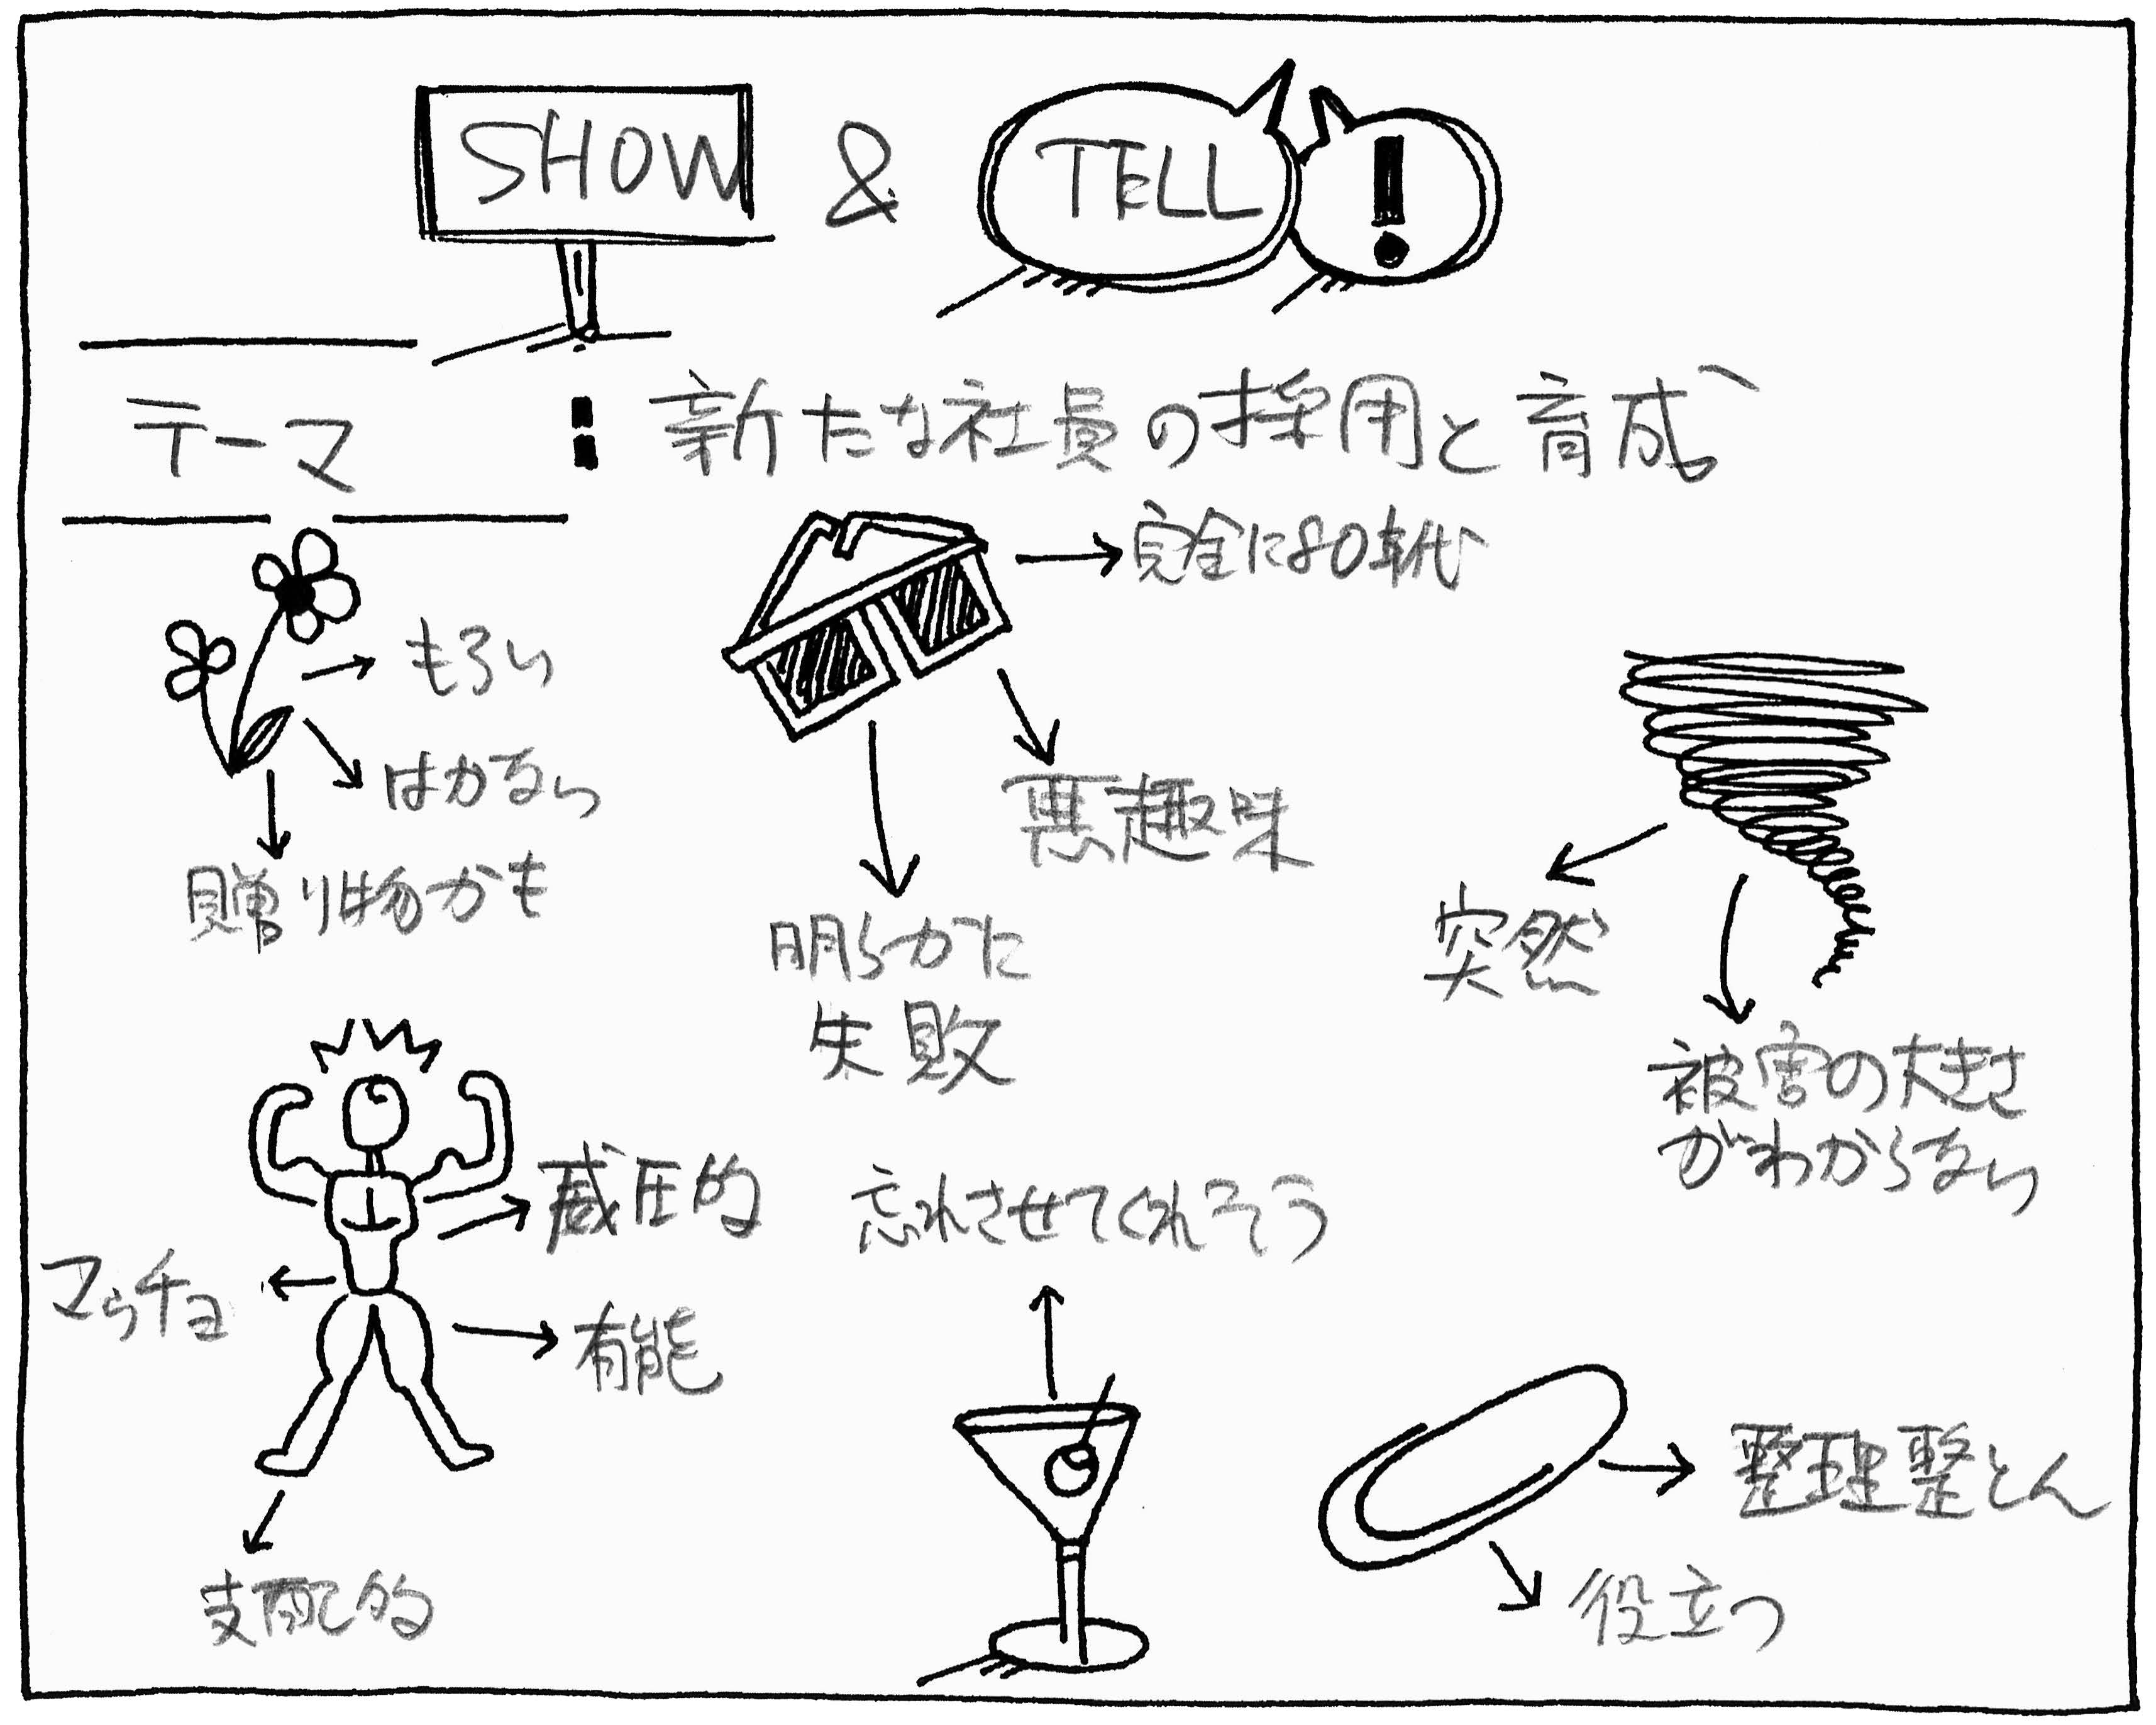 SHOW & TELL !
テーマ : 新たな社員の採用と育成
完全に80年代
もろい
はかない
贈り物かも
悪趣味
明らかに
失敗
突然
被害の大きさ
がわからない
威圧的
マッチョ
有能
支配的
忘れさせてくれそう
整理整とん
役立つ